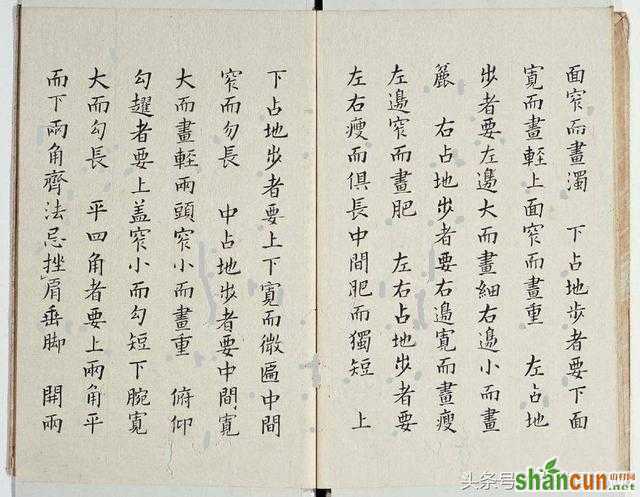 面窄而畫濁　下占地步者要下面
寬而畫輕上面窄而畫重　左占地
步者要左邊大而畫細右邊小而畫
麄　右占地步者要右邊寬而畫瘦
左邊窄而畫肥　左右占地步者要
左右瘦而俱長中間肥而獨短　上
下占地步者要上下寬而微匾中間
窄而勿長　中占地步者要中間寬
大而畫輕兩頭窄小而畫重　俯仰
勾趯者要上盖窄小而勾短下腕寬
大而勾長　平四角者要上兩角平
而下兩角齊法忌挫眉垂脚　開兩
头条号
shancun
山村网
.net